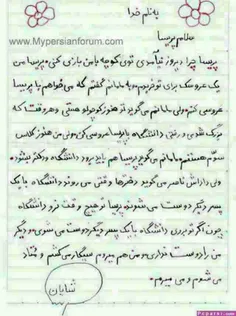 به نام خدا
www.Mypersianforum.com
سلام پریسا
پریسا چرا دیروز نیامدی توی کوچه با من بازی کنی، پریسا من
یک عروسک برای تو خریدم به مامانم گفتم که می خواهم با پریسا
عروسی کنم ولی مامانم می گوید تو هنوز کوچولو هستی و هر وقت که
بزرگ شوی و رفتی دانشگاه با پریسا عروسی کن ولی من هنوز کلاس
سوم هستم مامانم می گوید پریسا هم باید برود دانشگاه و دکتر بشود.
ولی داداش ناصر می گوید دخترها وقتی می روند دانشگاه با یک
پسر دیگر دوست می شوند، پریسا تو هیچ وقت نرو دانشگاه
چون اگر تو بروی دانشگاه با یک پسر دیگر دوست می شوی و دیگر
من را دوست نداری و من هم میروم سیگار می کشم و معتاد
می شوم و می میرم.
شایان